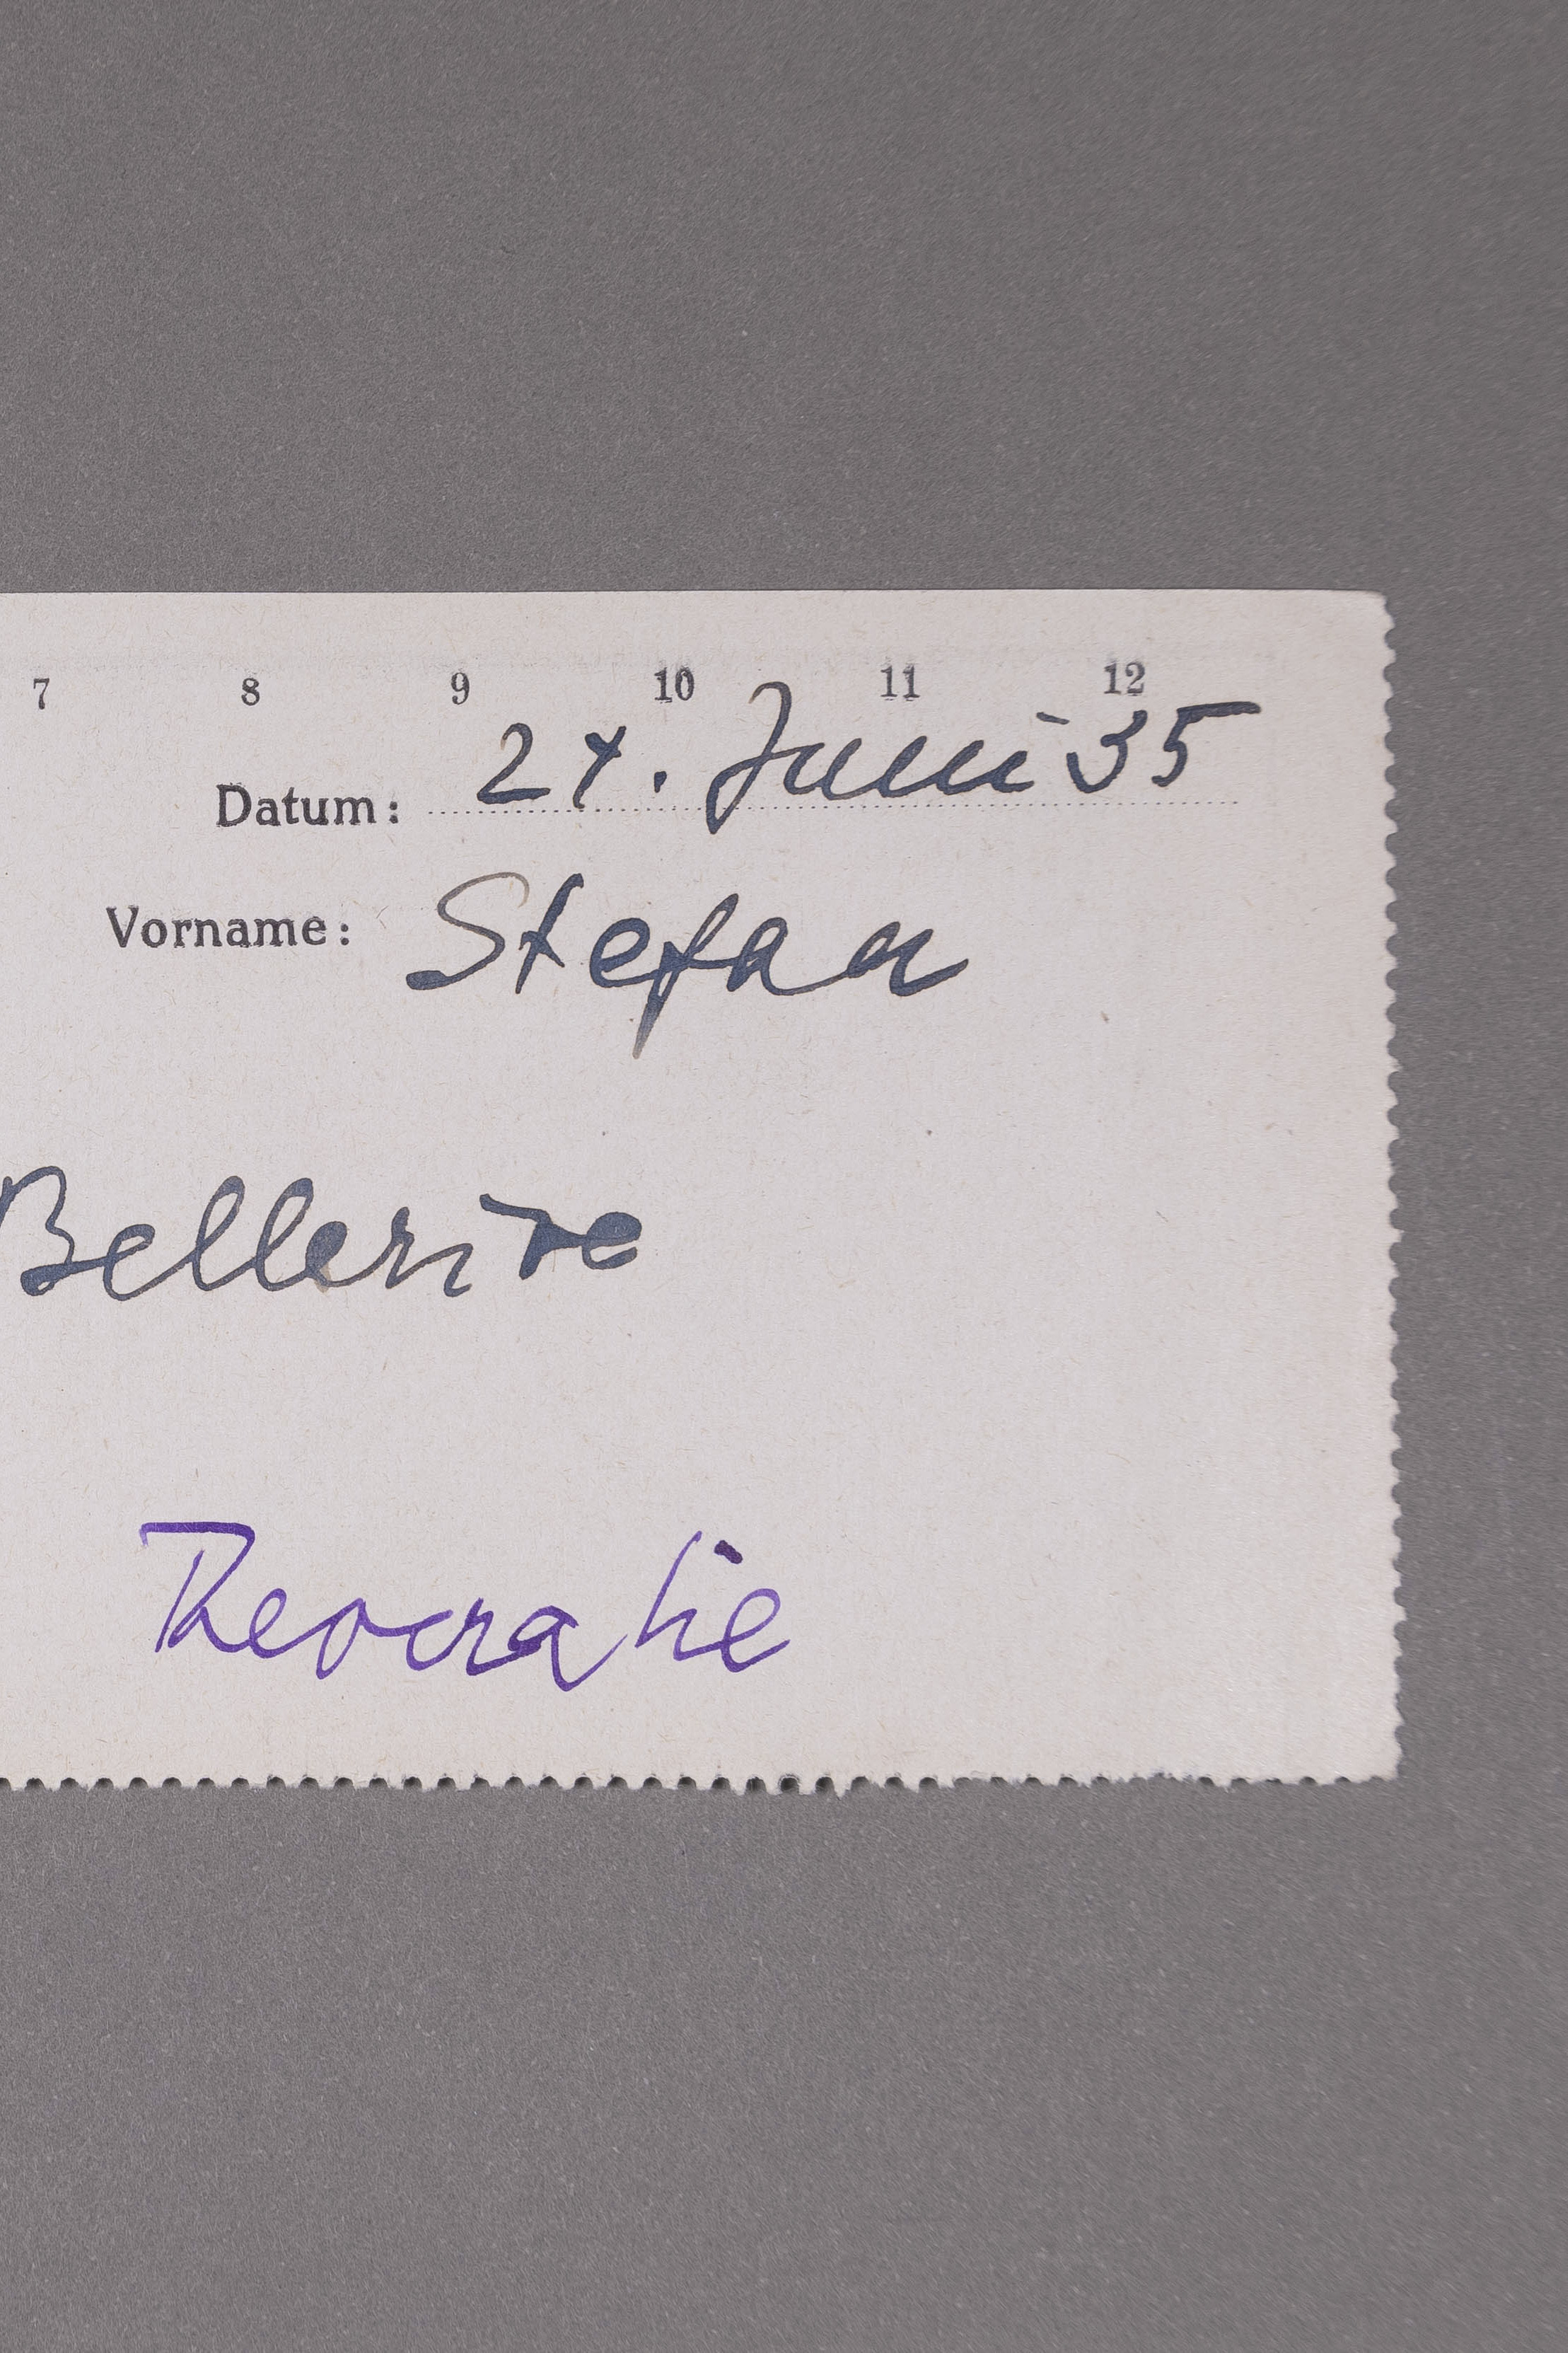 7 8 9 10 11 12
Datum: 24. Juni 35
Vorname: Stefan
Bellerive